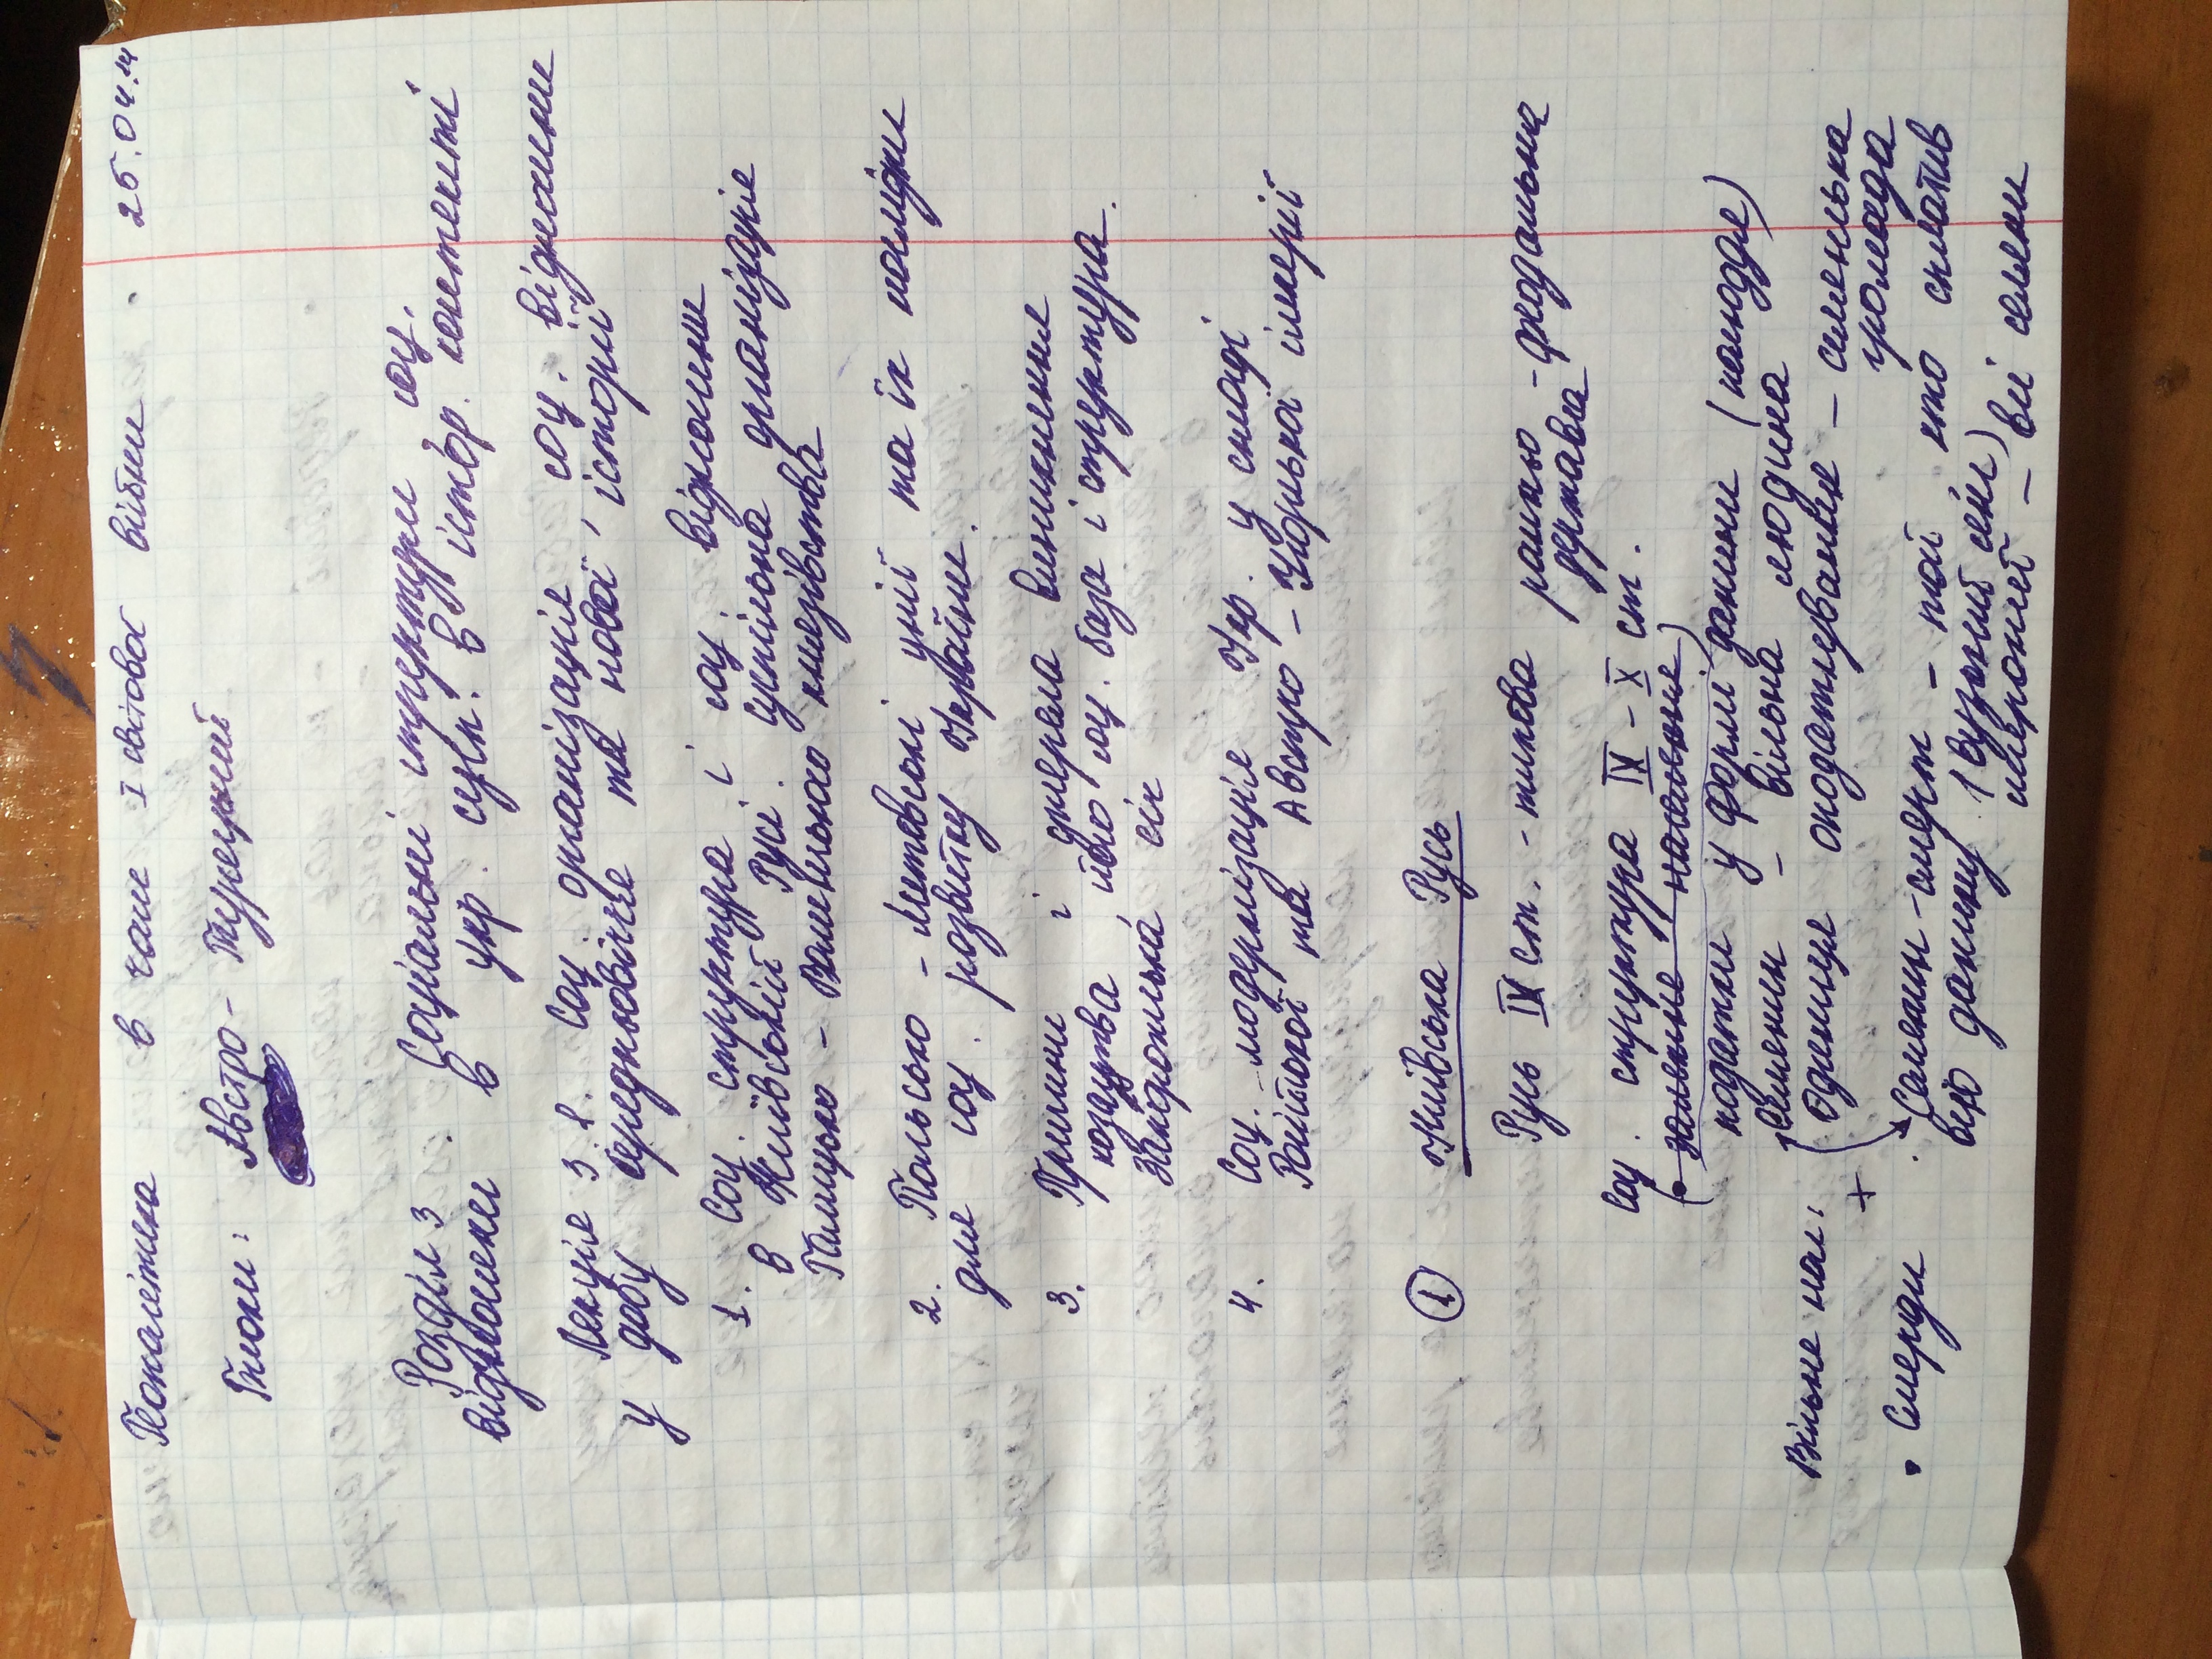 Геополітика в часи I світової війни 25.04.14
Блоки: Австро - Турецький
Розділ 3. Соціальні структури, соц.
відносини в укр. сусп. в істор. контексті
Лекція 3.1. Соц. організація, соц. відносини
у добу середньовіччя та нової історії
1. Соц. структура і соц. відносини
в Київській Русі. Суспільна організація
Галицько - Волинського князівства
2. Польсько - Литовські унії та їх наслідки
для соц. розвитку України.
3. Причини і джерела виникнення
козацтва, його соц. база і структура.
Запорожська січ
4. Соц. модернізація Укр. у складі
Російської та Австро - Угорської імперії
① Київська Русь
Русь IX ст. - типова ранньо - феодальна
держава
Соц. структура IX - X ст.
(• залежне населення)
податки у формі данини (полюддя)
Селянин - вільна людина
Вільне нас: Одиниця оподаткування - селянська
+ громада
• Смерди • Селянин - смерт - той, хто сплатив
всю данину (вузький сенс)
широкий - всі селяни